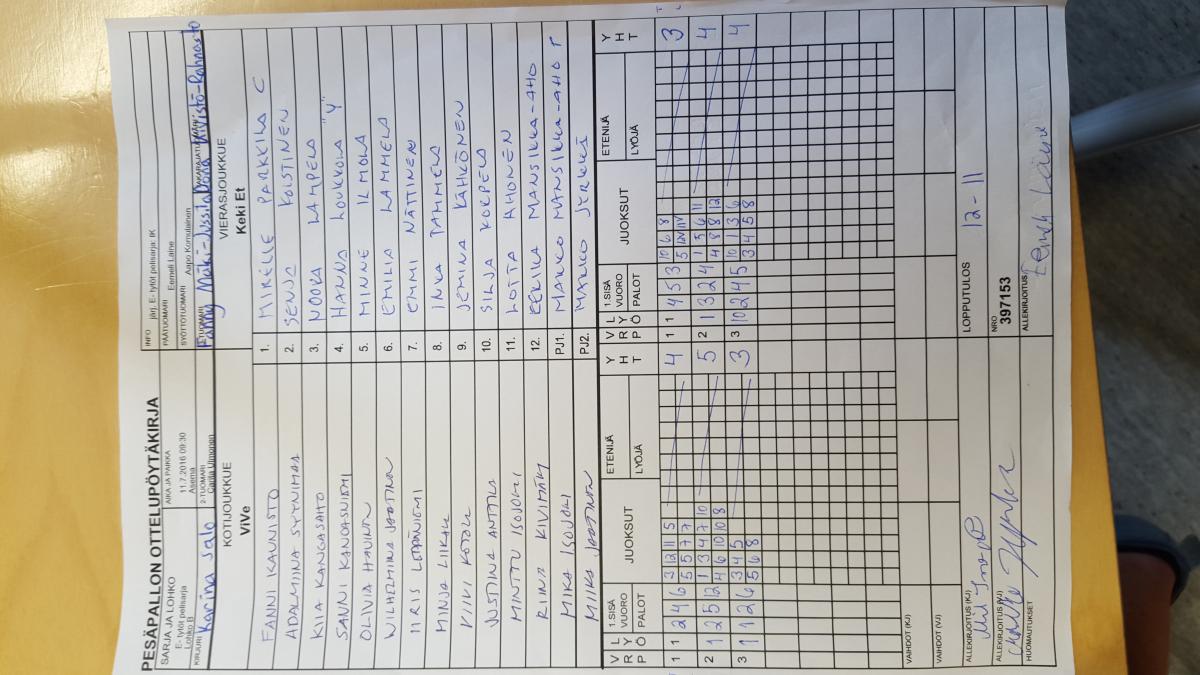 PESÄPALLON OTTELUPÖYTÄKIRJA
SARJA JA LOHKO
E- tytöt pelisarja
Lohko B
AIKA JA PAIKKA
11.7.2016 09:30
Asema
INFO järj. E- tytöt pelisarja: IK
PÄÄTUOMARI Eemeli Laine
SYÖTTÖTUOMARI Aapo Komulainen
KIRJURI Karina Salo
2-TUOMARI
KOTIJOUKKUE
ViVe
VIERASJOUKKUE
Keki Et
FANNI KAUNISTO 1. MIRELLE PARKKILA C
ADALMIINA SYTYNIMAA 2. SENJA KOISTINEN
KIIA KANGASAHTO 3. NOORA LAMPELA
SAUNI KANGASNIEMI 4. HANNA LOUKKOLA "Y"
OLIVIA HAUINEN 5. MINNE ILMOLA
WILHELMIINA JOOTINEN 6. EMILIA LAMMELA
IIRIS LEPPÄNIEMI 7. EMMI NÄTTINEN
MINJA LIIKALA 8. INKA TAMMELA
VIIVI KOTALA 9. JEMINA KÄHKÖNEN
JUSTIINA ANTTILA 10. SILJA KORPELA
MINTTU ISOJOKI 11. LOTTA AHONEN
RIINA KIVIMÄKI 12. EERIKA MANSIKKA-AHO
MIKA ISOJOKI PJ1. MARKO MANSIKKA-AHO T
MIIKA JOOTINEN PJ2. MARKO
V R P L Y Ö 1.SISÄ VUORO PALOT JUOKSUT ETENIJÄ LYÖJÄ Y H T V R P L Y Ö 1.SISÄ VUORO PALOT JUOKSUT ETENIJÄ LYÖJÄ Y H T
1 1 2 4 6 3 12 11 5 4 1 1 4 5 3 10 6 8 3
5 5 7 7 5
2 1 2 5 12 1 3 4 7 10 5 2 1 3 2 4 1 5 6 11 4
4 6 10 10 8 4 8 8 12
3 1 1 2 6 3 4 5 3 3 10 2 4 5 10 1 3 6 4
5 6 8 3 4 5 8
VAIHDOT (KJ)
VAIHDOT (VJ)
ALLEKIRJOITUS (KJ)
LOPPUTULOS 12-11
ALLEKIRJOITUS (VJ)
NRO
397153
HUOMAUTUKSET
ALLEKIRJOITUS
Eemeli Laine